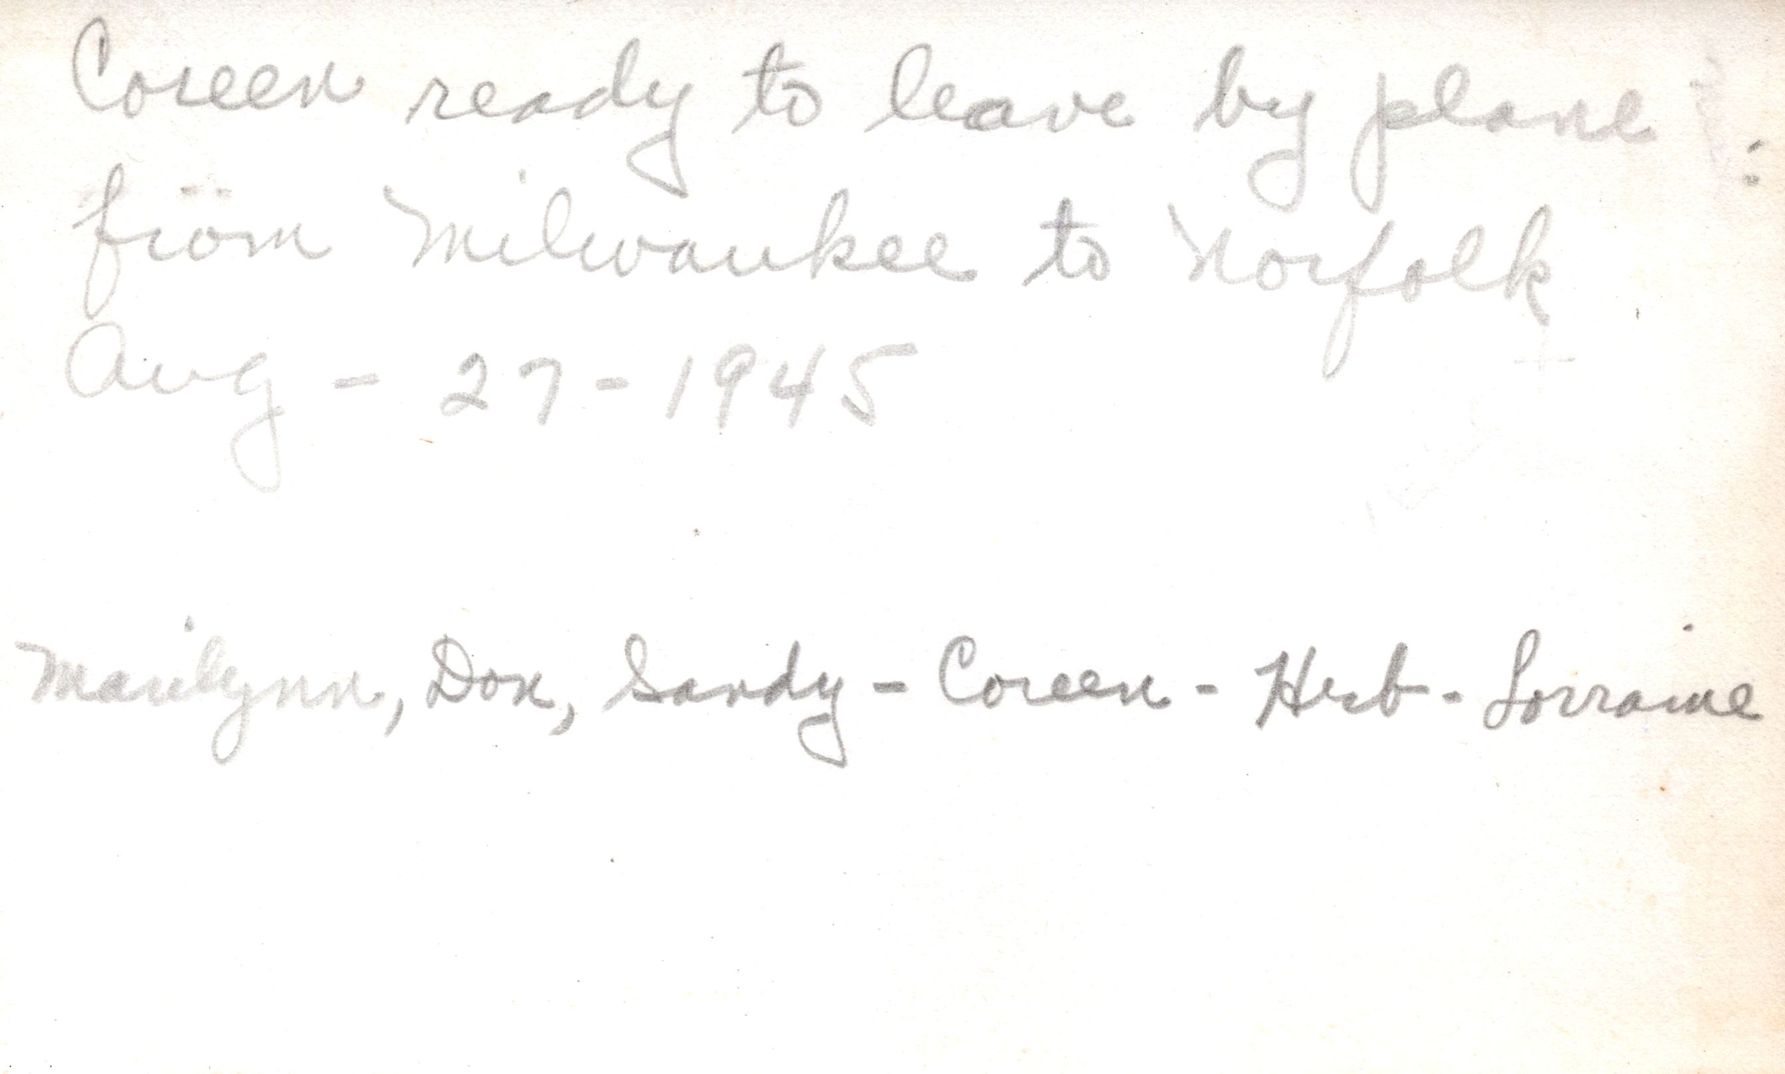 Coreen ready to leave by plane
from Milwaukee to Norfolk
Aug - 27 - 1945
Marilynn, Don, Sandy - Coreen - Herb - Lorraine